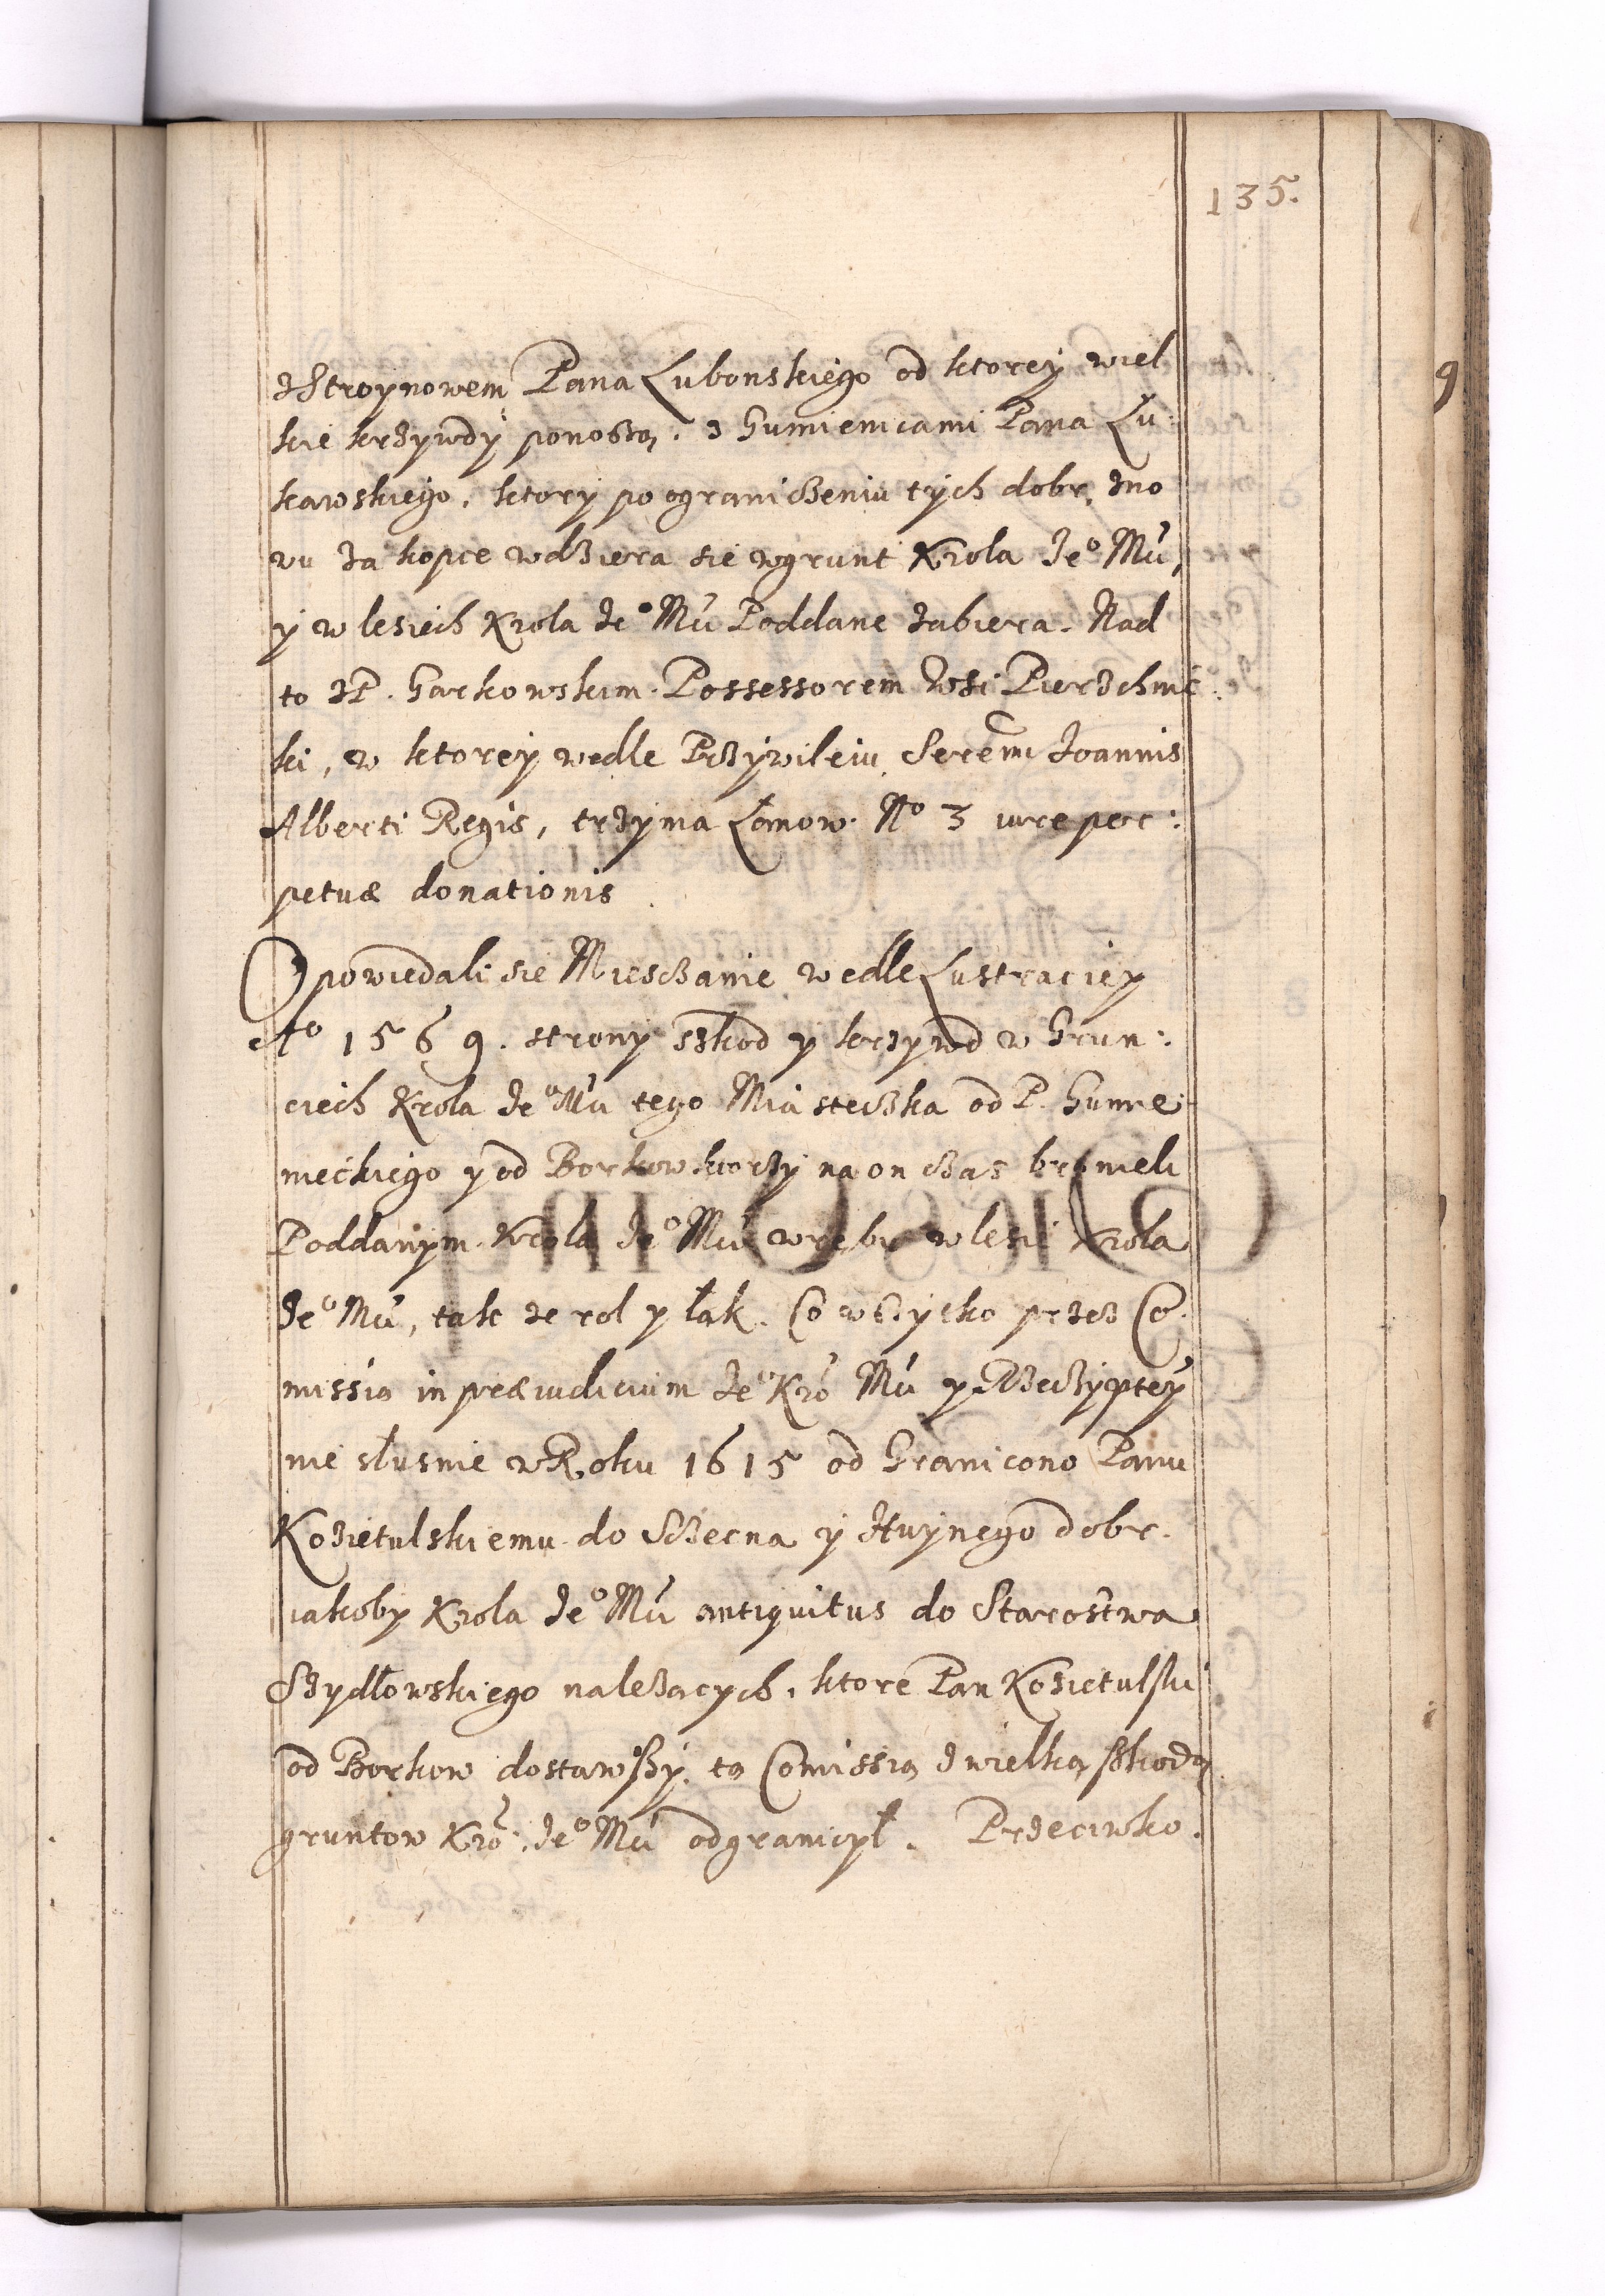 135.
z Stroynowem Pana Lubonskiego od ktorey wiel
kie krzywdy ponoszą. z Gumienicami Pana Lu:
kawskiego, ktory po ograniczeniu tych dobr, zno
wu za kopce wdziera sie w grunt Krola Je° Mći,
y w lesiech Krola Je° Mći Poddane zabiera. Nad
to z P. Garkowskim Possessorem Wsi Pierzchnic:
ki, w ktorey wedle Przywileiu Serenmi Joannis
Alberti Regis, trzyma Łanow N° 3 iure per:
petuæ donationis
Opowiedali sie Miesczanie wedle Lustraciey
A° 1569. strony szkod y krzywd w Grun:
ciech Krola Je° Mći tego Miasteczka od P. Gumie:
nieckiego y od Borkow ktorzy na on czas bronieli
Poddanym Krola Je° Mći wrębu w lesie Krola
Je° Mći, tak ze rol y łąk. Co wszytko przez Co:
missią in præiudicium Je° Kró Mći y Rzeczypltey
nie słusnie w Roku 1615 od Granicono Panu
Kozietulskiemu do Sczecna y Huynego dobr.
iakoby Krola Je° Mći antiquitus do Starostwa
Szydłowskiego nalezących, ktore Pan Kozietulski
od Borkow dostawszy, tą Comissią z wielką szkodą
gruntow Kró: Je° Mći odgranicył. Przeciwko.